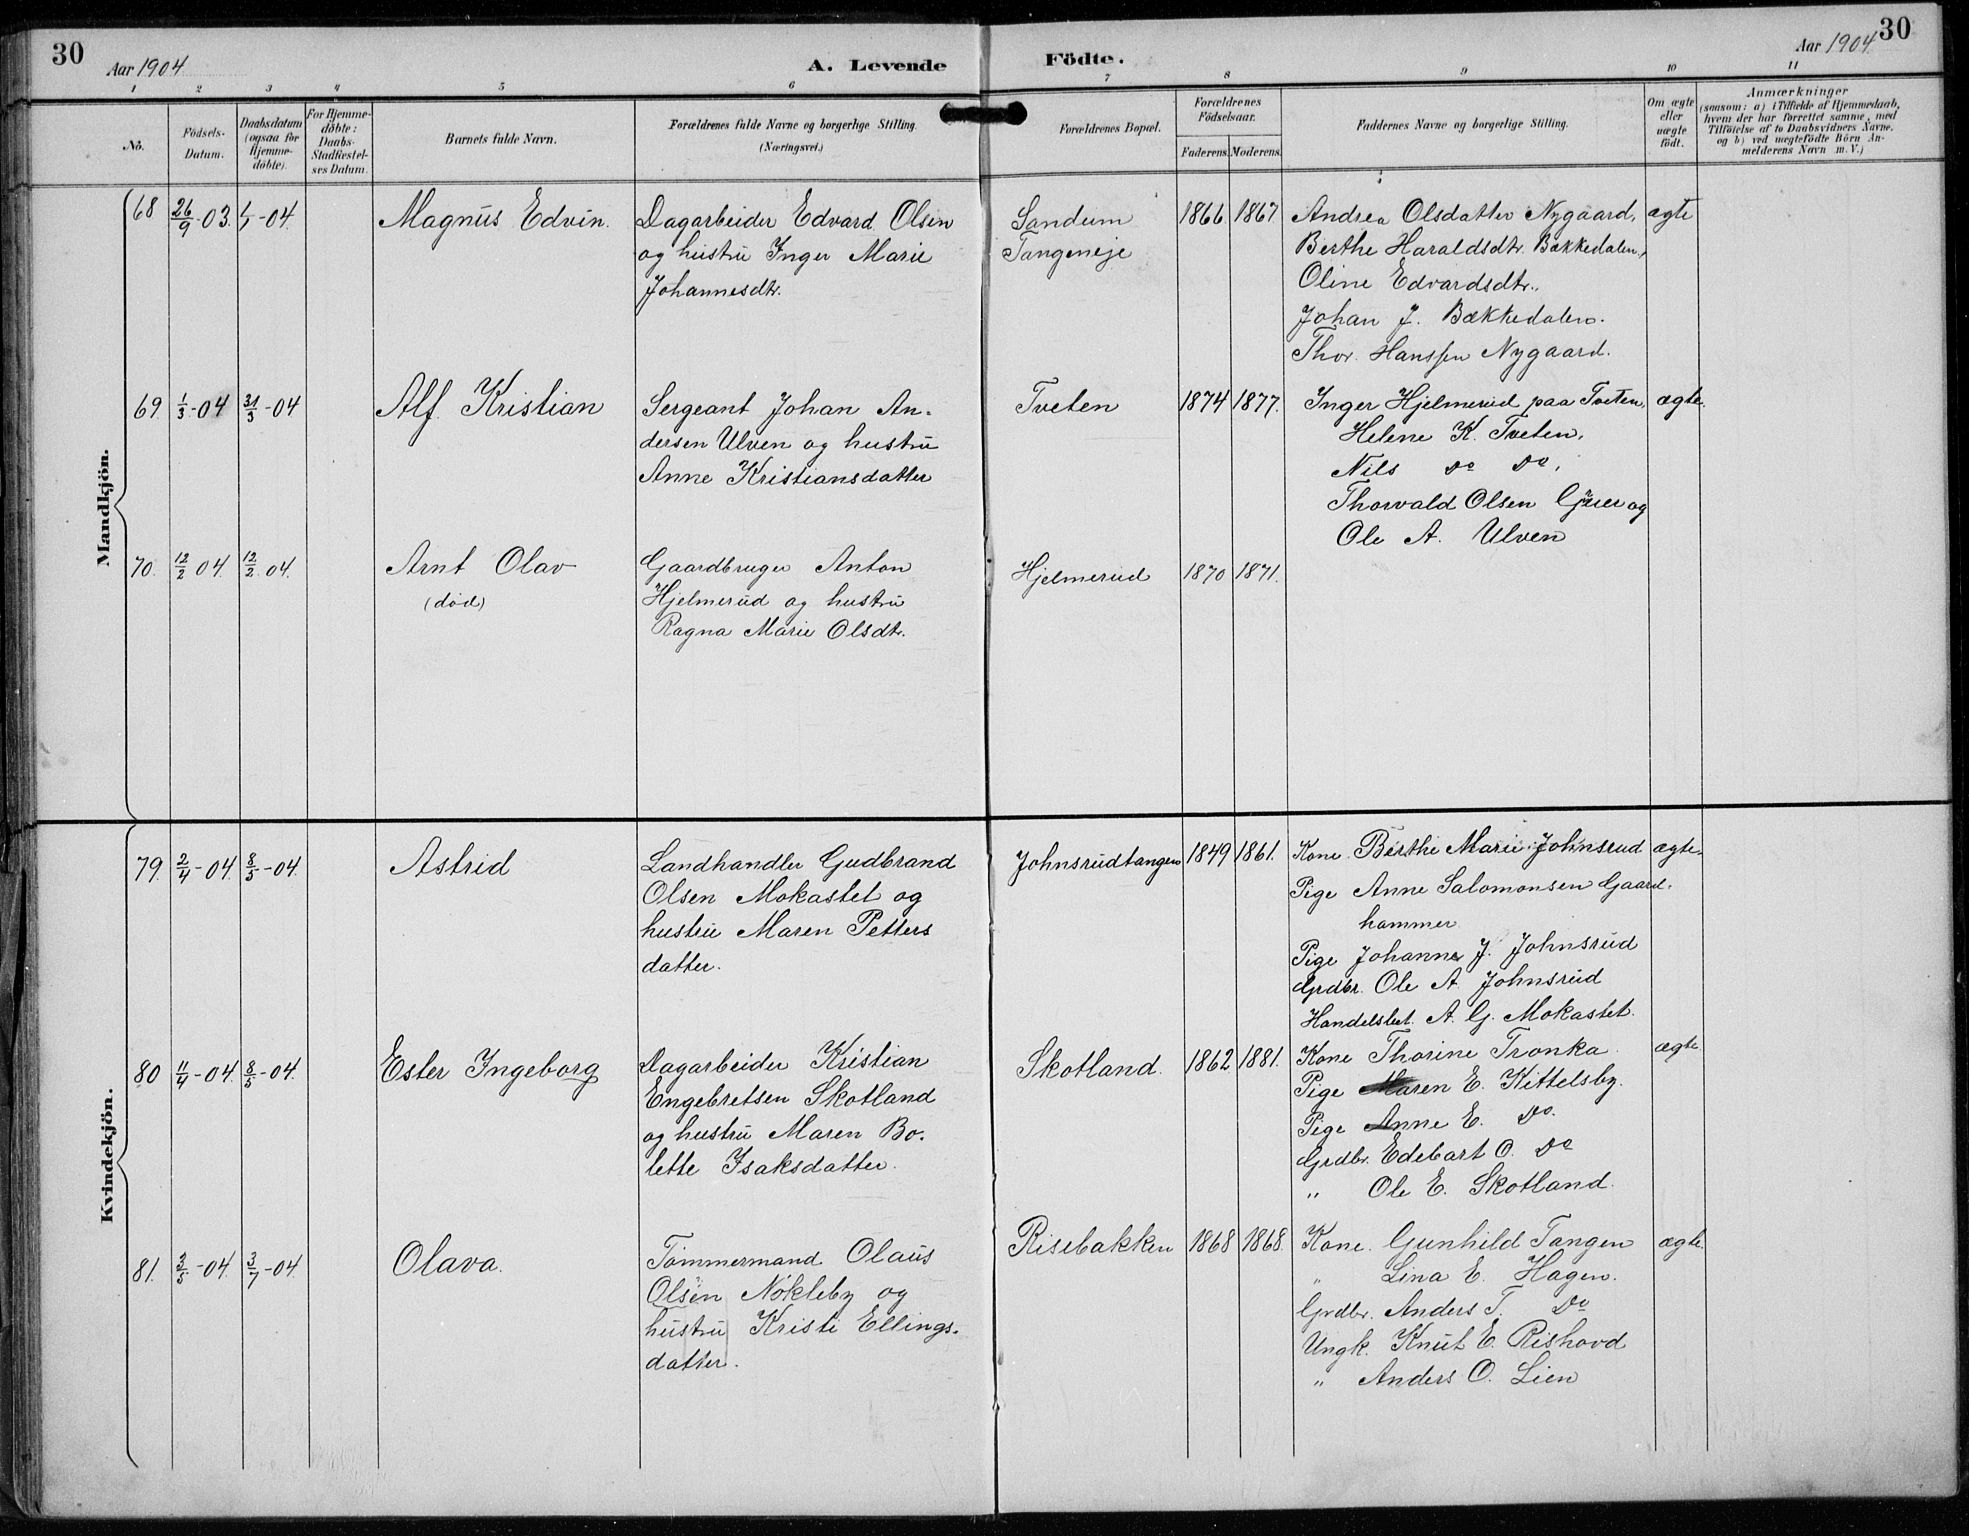 30
Aar 1904
A. Levende Födte.
Aar 1904
30
1 2 3 4 5 6 7 8 9 10 11
No.
Födsels-Datum.
Daabsdatum (ogsaa for Hjemme-döbte).
For Hjemme-döbte: Daabs-Stadfæstel-ses Datum.
Barnets fulde Navn.
Forældrenes fulde Navne og borgerlige Stilling. (Næringsvei.)
Forældrenes Bopæl.
Forældrenes Födselsaar.
Faderens. Moderens.
Faddernes Navne og borgerlige Stilling.
Om ægte eller uægte födt.
Anmærkninger
(saasom: a) i Tilfælde af Hjemmedaab, hvem der har forrettet samme, med Tilföielse af to Daabsvidners Navne, og b) ved uægtefödte Börn An-melderens Navn m. V.)
Mandkjön.
68 26/9-03. -04. Magnus Edvin.
Dagarbeider Edvard Olsen
og hustru Inger Marie
Johannesdtr.
Sandum
Tangeneje
1866 1867
Andrea Olsdatter Nygaard, ægte
Berthe Haraldsdtr. Bækkedalen,
Oline Edvardsdtr.,
Johan J. Bækkedalen.
Thor Hanssen Nygaard.
69. 1/3-04 31/3-04 Alf Kristian
Sergeant Johan An-
dersen Ulven og hustru
Anne Kristiansdatter
Tveten
1874 1877.
Inger Hjelmerud paa Tveten, ægte.
Helene K. Tveten,
Nils Do Do,
Thorvald Olsen og
Ole A. Ulven
70. 12/2 04. 12/2 04. Arnt Olav
(död)
Gaardbruger Anton
Hjelmerud og hustru
Ragna Marie Olsdtr.
Hjelmerud
1870 1871.
Kvindekjön.
79. 2/4-04. 8/5-04. Astrid
Landhandler Gudbrand
Olsen Mokastet og
hustru Maren Petters
datter.
Johnsrudtangen
1849 1861.
Kone Berthe Marie Johnsrud ægte.
Pige Anne Salomonsen Gaard-
hammer
Pige Johanne J. Johnsrud
Grdbr. Ole A. Johnsrud
Handelsbet. A. G. Mokastet.
80 11/4-04. 8/5-04. Ester Ingeborg
Dagarbeider Kristian
Engebretsen Skotland
og hustru Maren Bo-
lette Isaksdatter.
Skotland.
1862 1881.
Kone Thorine Tronka. ægte.
Pige Maren E. Kittelsby.
Pige Anne E. Do.
Grdbr. Edebart O. Do
„ Ole E. Skotland.
81. /5-04. 3/7-04. Olava.
Tömmermand Olaus
Olsen Nökleby og
hustru Kristi Ellings-
datter.
Risebakken
1868 1868.
Kone Gunhild Tangen ægte.
„ Lina E. Hagen.
Grdbr. Anders T. Do
Ungk. Knut E. Rishovd
„ Anders O. Lien